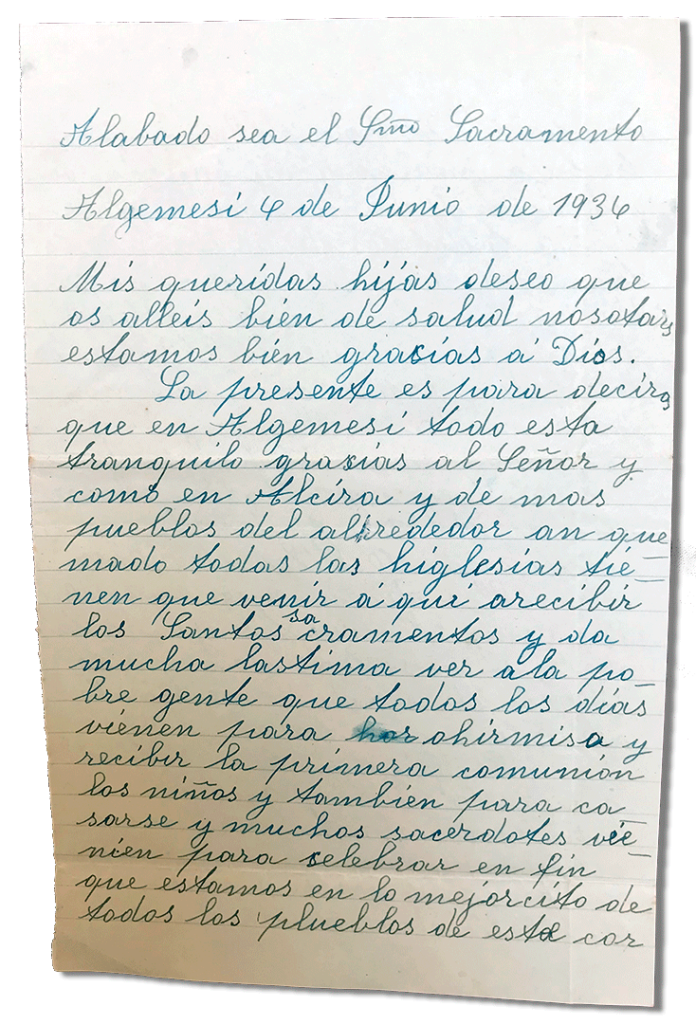 Alabado sea el Smo Sacramento
Algemesí 6 de Junio de 1936
Mis queridas hijas deseo que
os alleis bién de salud nosotars
estamos bién grasias á Dios.
La presente es para deciros
que en Algemesí todo esta
tranquilo grasias al Señor y
como en Alcira y de mas
pueblos del alrrededor an que
mado todas las higlesias tie-
nen que venir á qui arecibir
los Santos sacramentos y da
mucha lastima ver ala po-
bre gente que todos los días
vienen para ohirmisa y
recibir la primera comunión
los niños y tambien para ca-
sarse y muchos sacerdotes vie-
nien para selebrar en fin
que estamos en lo mejorcito de
todos los plueblos de esta cor